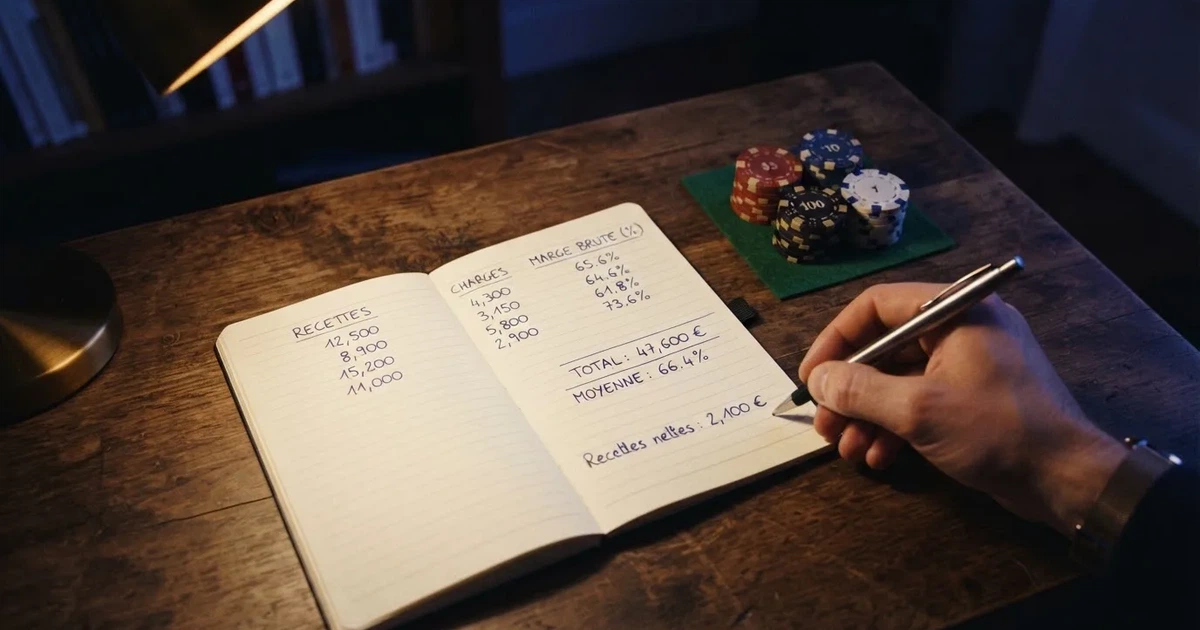 RECETTES
12,500
8,900
15,200
11,000
CHARGES
4,300
3,150
5,800
2,900
MARGE BRUTE (%)
65.6%
64.6%
61.8%
73.6%
TOTAL: 47,600 €
MOYENNE: 66.4%
Recettes nettes: 2,100 €
10
100
1